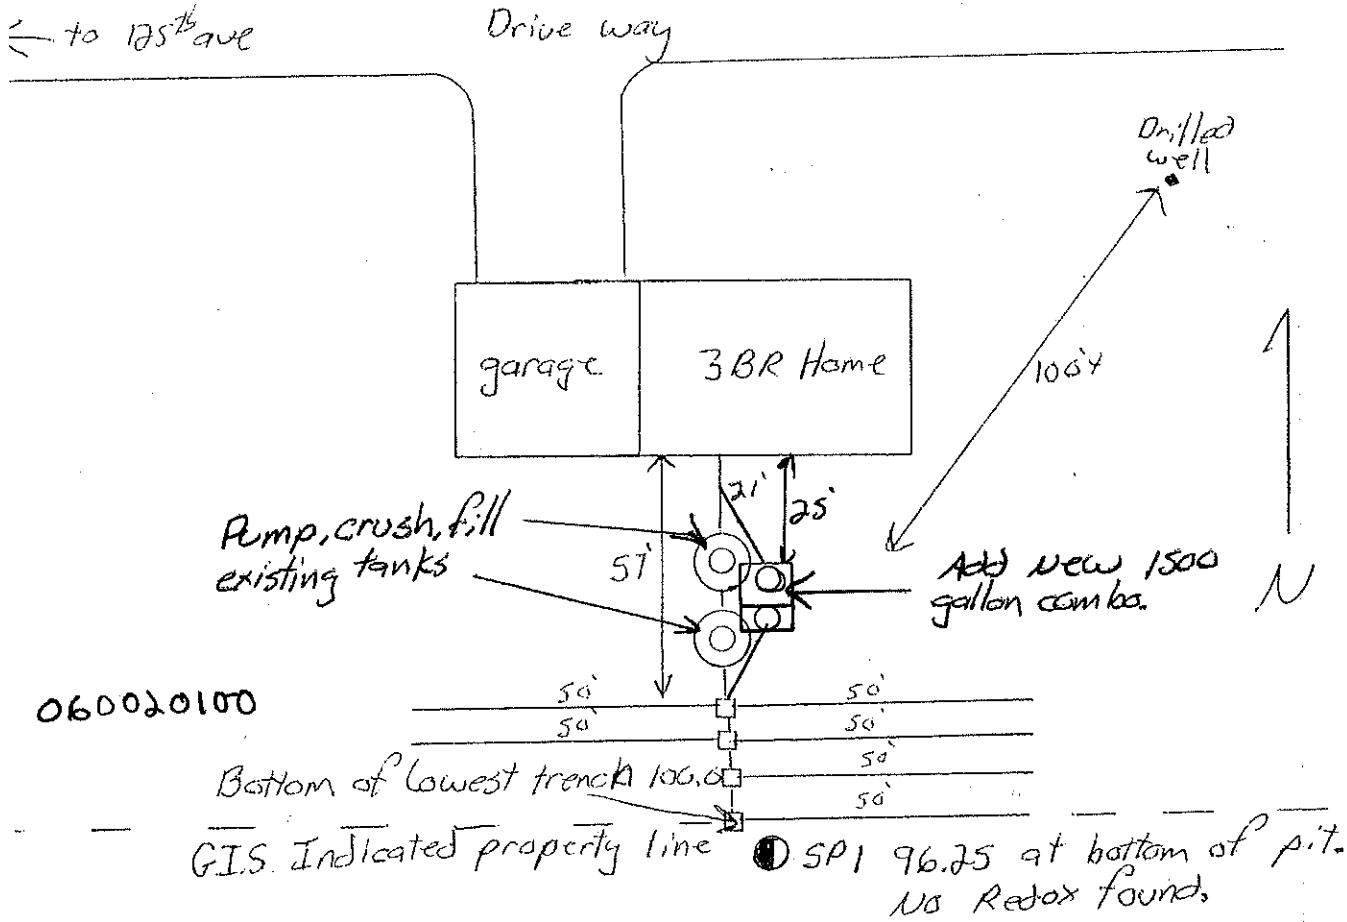 ← to 125th ave
Drive way
Drilled
well
garage
3 BR Home
100'+
21'
25'
57'
Pump, crush, fill
existing tanks
Add new 1500
gallon combo.
N
060020100
50'
50'
50'
50'
50'
50'
Bottom of lowest trench 100.0
G.I.S. Indicated property line
SP1 96.25 at bottom of pit.
No Redox found.